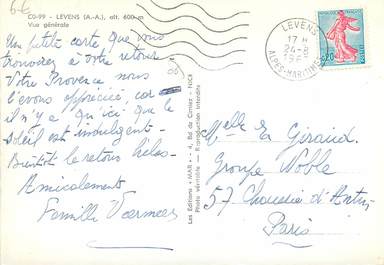 6€
C0-99 - LEVENS (A.-A.), alt. 600 m
Vue générale
Un petite carte que vous
trouverez à votre retour
Votre Provence nous
l'avons appréciée car
il n'y a qu'ici que le
soleil est indulgent -
Bientôt le retour hélas -
Amicalement
Famille Vaermees
Les Editions "MAR" - 4, Bd de Cimiez - NICE
Photo véritable - Reproduction interdite
LEVENS
17 H
24-8
ALPES-MARITIMES
0,20
Melle G Giraux
Groupe Noble
57 Chaussée d'Antin
Paris